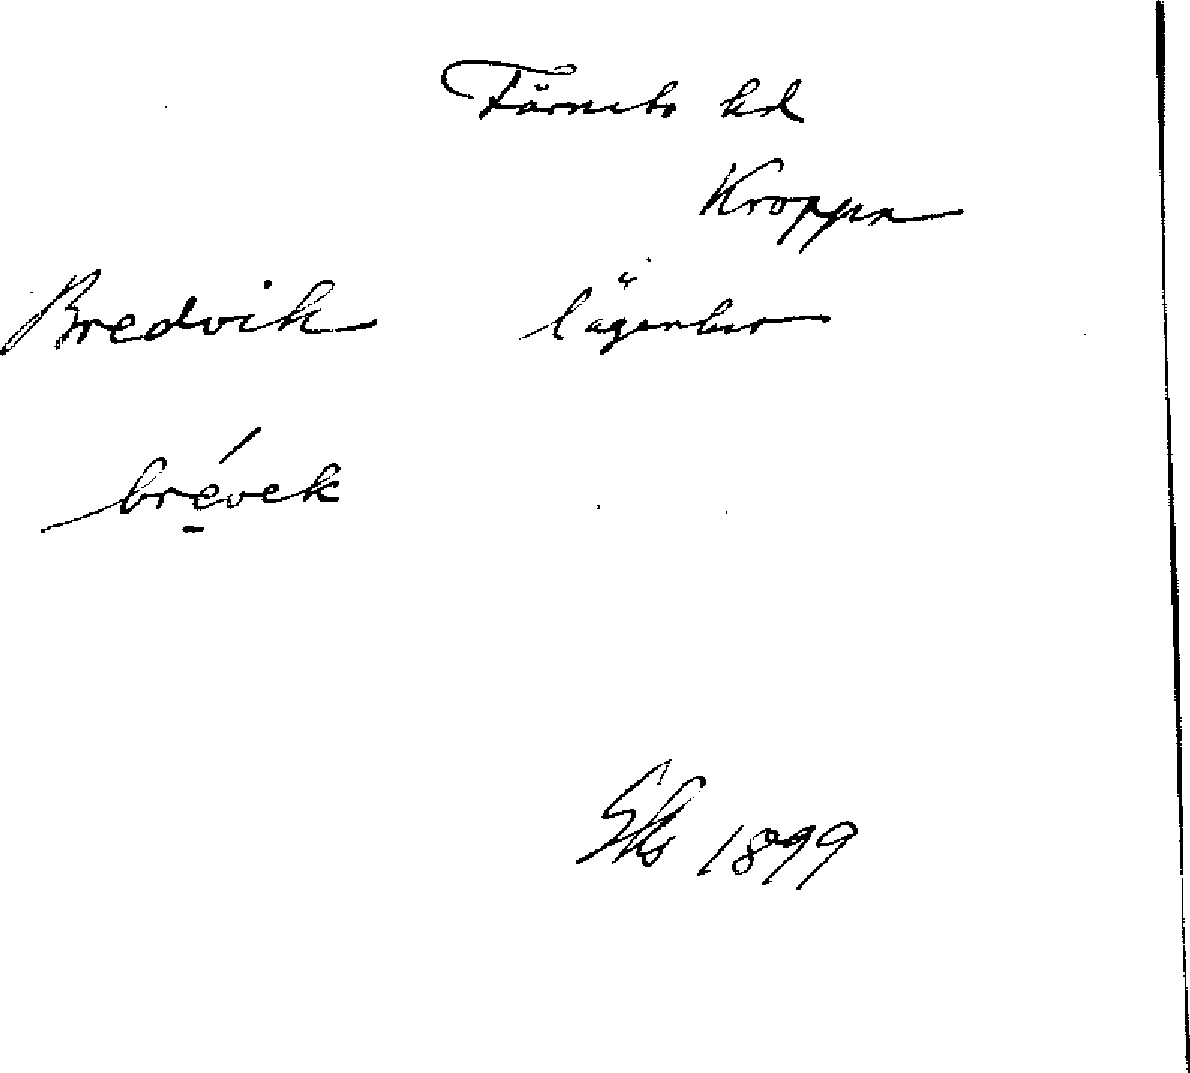 Färnebo hd
Kroppa
Bredvik lägenhet
brévek
1899